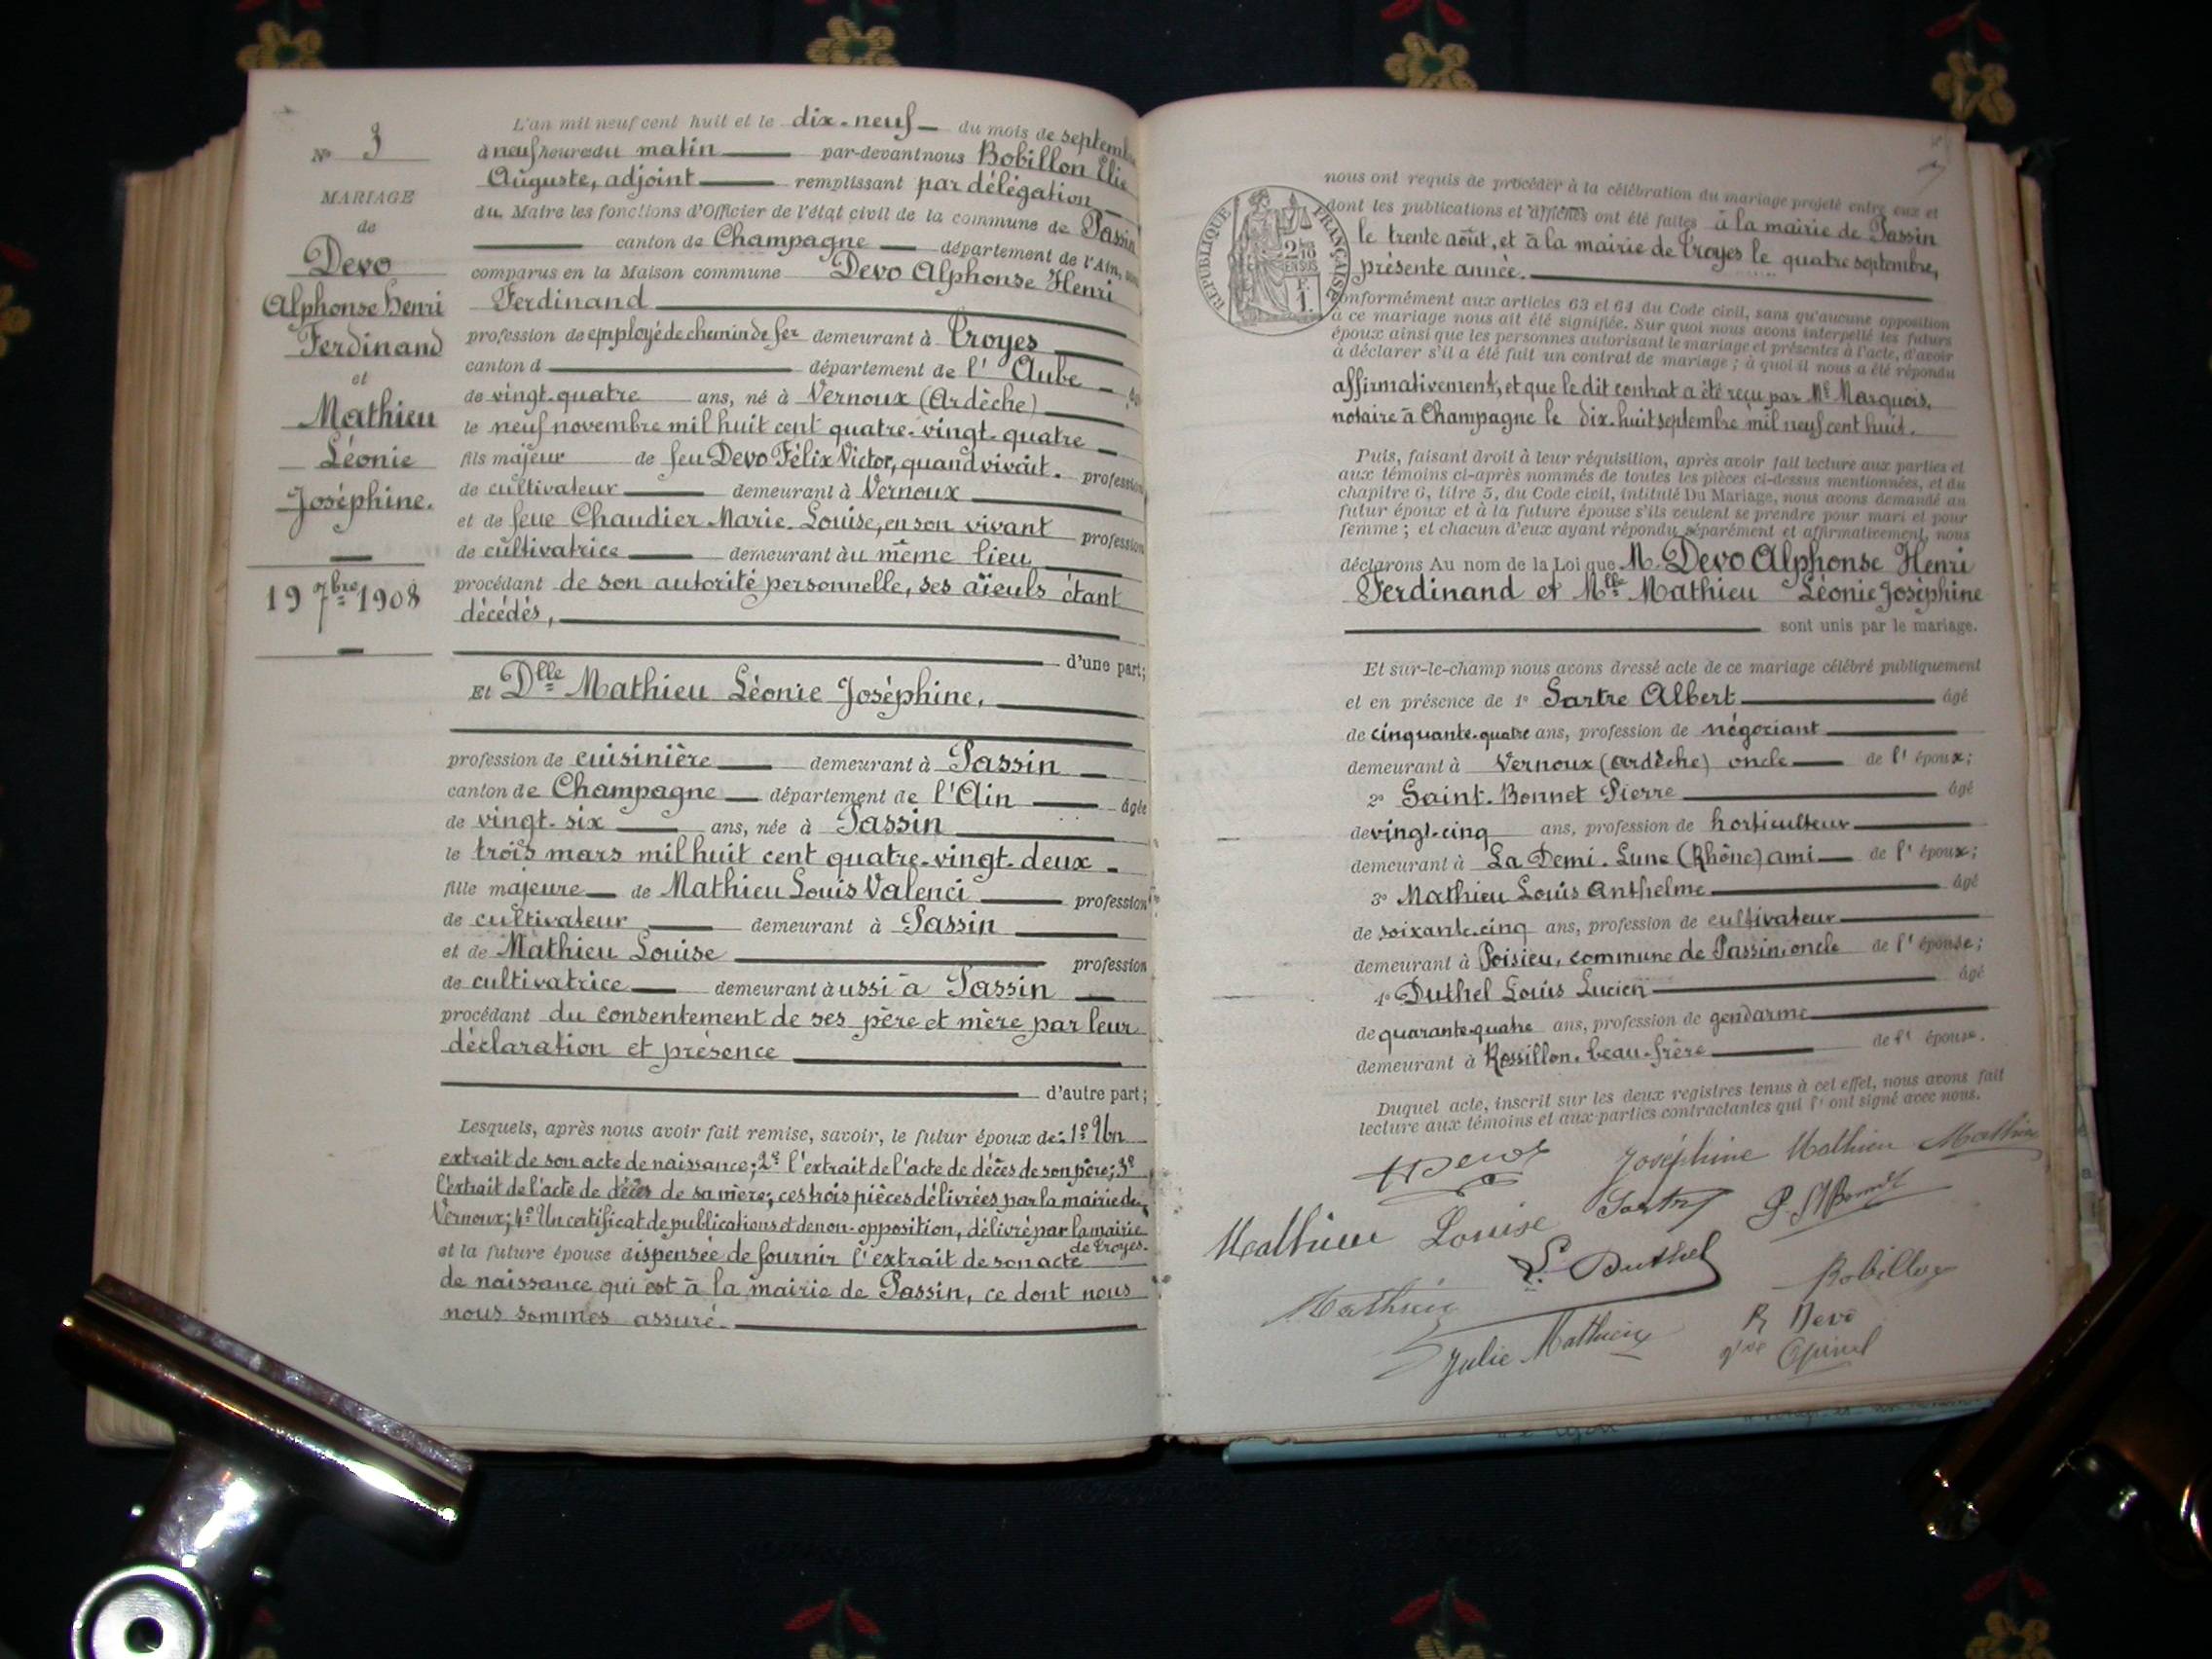 L'an mil neuf cent huit et le dix-neuf du mois de septembre
Nº 3
à neuf heures du matin par-devant nous Bobillon Elie
Auguste, adjoint remplissant par délégation
du Maire les fonctions d'Officier de l'état civil de la commune de Passin
canton de Champagne département de l'Ain,
comparus en la Maison commune Devo Alphonse Henri
Ferdinand
profession de employé de chemin de fer demeurant à Troyes
canton d département de l'Aube
de vingt-quatre ans, né à Vernoux (Ardèche)
le neuf novembre mil huit cent quatre-vingt-quatre
fils majeur de feu Devo Félix Victor, quand vivait profession
de cultivateur demeurant à Vernoux
et de feue Chaudier Marie-Louise, en son vivant profession
de cultivatrice demeurant àu même lieu
procédant de son autorité personnelle, ses aïeuls étant
décédés,
d'une part;
MARIAGE
de
Devo
Alphonse Henri
Ferdinand
et
Mathieu
Léonie
Joséphine.
19 7bre 1908
Et Dlle Mathieu Léonie Joséphine,
profession de cuisinière demeurant à Passin
canton de Champagne département de l'Ain âgée
de vingt-six ans, née à Passin
le trois mars mil huit cent quatre-vingt-deux
fille majeure de Mathieu Louis Valenci profession
de cultivateur demeurant à Passin
et de Mathieu Louise profession
de cultivatrice demeurant àussi à Passin
procédant du consentement de ses père et mère par leur
déclaration et présence
d'autre part;
Lesquels, après nous avoir fait remise, savoir, le futur époux de: 1º Un
extrait de son acte de naissance; 2º l'extrait de l'acte de décès de son père; 3º
l'extrait de l'acte de décès de sa mère; ces trois pièces délivrées par la mairie de
Vernoux; 4º Un certificat de publications et de non-opposition, délivré par la mairie
de Troyes.
et la future épouse dispensée de fournir l'extrait de son acte
de naissance qui est à la mairie de Passin, ce dont nous
nous sommes assuré.
RÉPUBLIQUE FRANÇAISE
2/10 EN SUS
F. 1.
nous ont requis de procéder à la célébration du mariage projeté entre eux et
dont les publications et affiches ont été faites à la mairie de Passin
le trente août, et à la mairie de Troyes le quatre septembre,
présente année.
conformément aux articles 63 et 64 du Code civil, sans qu'aucune opposition
à ce mariage nous ait été signifiée. Sur quoi nous avons interpellé les futurs
époux ainsi que les personnes autorisant le mariage et présentes à l'acte, d'avoir
à déclarer s'il a été fait un contrat de mariage; à quoi il nous a été répondu
affirmativement, et que le dit contrat a été reçu par Me Marquois,
notaire à Champagne le dix-huit septembre mil neuf cent huit.
Puis, faisant droit à leur réquisition, après avoir fait lecture aux parties et
aux témoins ci-après nommés de toutes les pièces ci-dessus mentionnées, et du
chapitre 6, titre 5, du Code civil, intitulé Du Mariage, nous avons demandé au
futur époux et à la future épouse s'ils veulent se prendre pour mari et pour
femme; et chacun d'eux ayant répondu séparément et affirmativement, nous
déclarons Au nom de la Loi que M. Devo Alphonse Henri
Ferdinand et Mlle Mathieu Léonie Joséphine
sont unis par le mariage.
Et sur-le-champ nous avons dressé acte de ce mariage célébré publiquement
et en présence de 1º Sartre Albert âgé
de cinquante-quatre ans, profession de négociant
demeurant à Vernoux (Ardèche) oncle de l'époux;
2º Saint-Bonnet Pierre âgé
de vingt-cinq ans, profession de horticulteur
demeurant à La Demi-Lune (Rhône) ami de l'époux;
3º Mathieu Louis Anthelme âgé
de soixante-cinq ans, profession de cultivateur
demeurant à Poisieu, commune de Passin, oncle de l'épouse;
4º Duthel Louis Lucien âgé
de quarante-quatre ans, profession de gendarme
demeurant à Rossillon, beau-frère de l'épouse.
Duquel acte, inscrit sur les deux registres tenus à cet effet, nous avons fait
lecture aux témoins et aux parties contractantes qui l'ont signé avec nous.
HDevo Joséphine Mathieu Mathieu
Mathieu Louise Sartre P. St Bonnet
L. Duthel Bobillon
Mathieu
Julie Mathieu R Devo